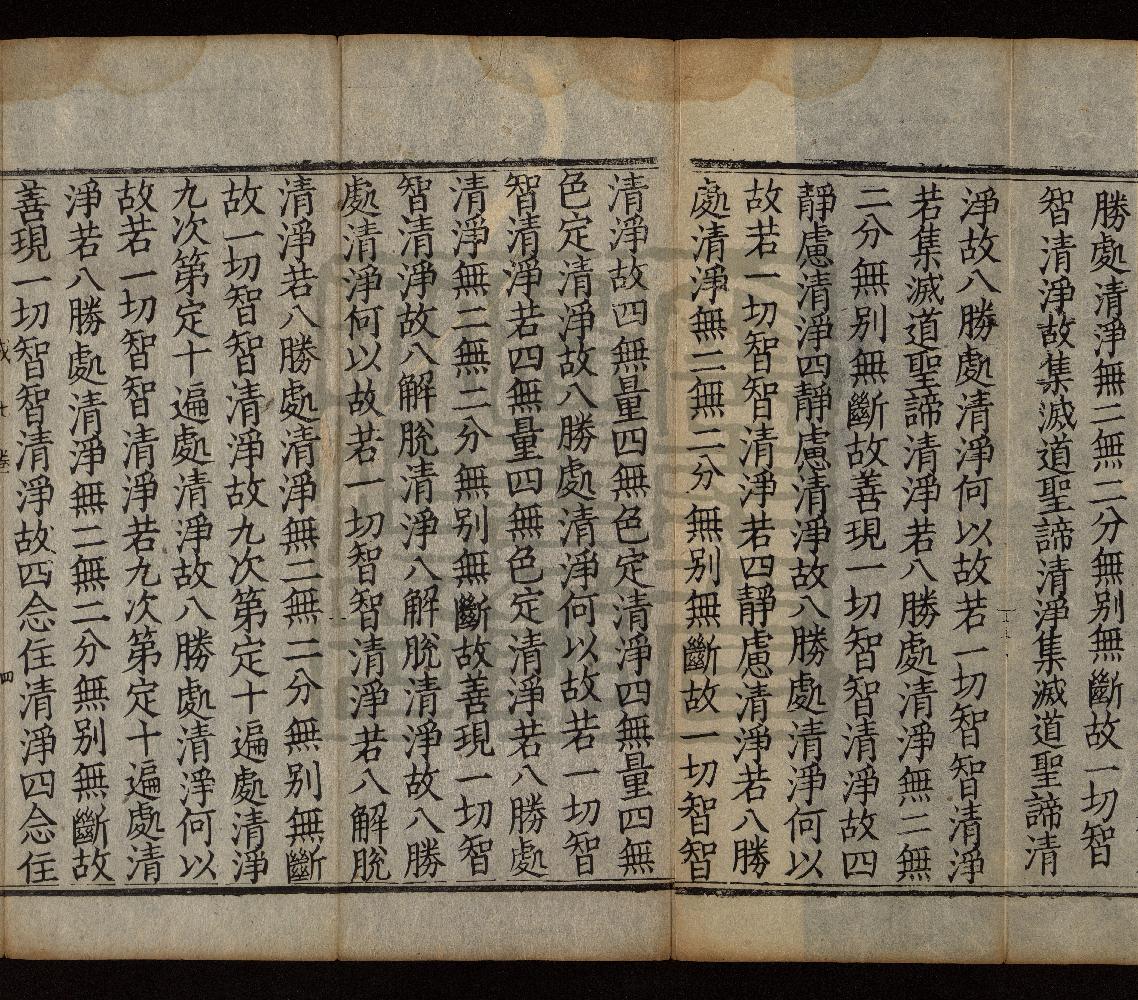 勝處清淨無二無二分無別無斷故一切智
智清淨故集滅道聖諦清淨集滅道聖諦清
淨故八勝處清淨何以故若一切智智清淨
若集滅道聖諦清淨若八勝處清淨無二無
二分無別無斷故善現一切智智清淨故四
靜慮清淨四靜慮清淨故八勝處清淨何以
故若一切智智清淨若四靜慮清淨若八勝
處清淨無二無二分無別無斷故一切智智
清淨故四無量四無色定清淨四無量四無
色定清淨故八勝處清淨何以故若一切智
智清淨若四無量四無色定清淨若八勝處
清淨無二無二分無別無斷故善現一切智
智清淨故八解脫清淨八解脫清淨故八勝
處清淨何以故若一切智智清淨若八解脫
清淨若八勝處清淨無二無二分無別無斷
故一切智智清淨故九次第定十遍處清淨
九次第定十遍處清淨故八勝處清淨何以
故若一切智智清淨若九次第定十遍處清
淨若八勝處清淨無二無二分無別無斷故
善現一切智智清淨故四念住清淨四念住